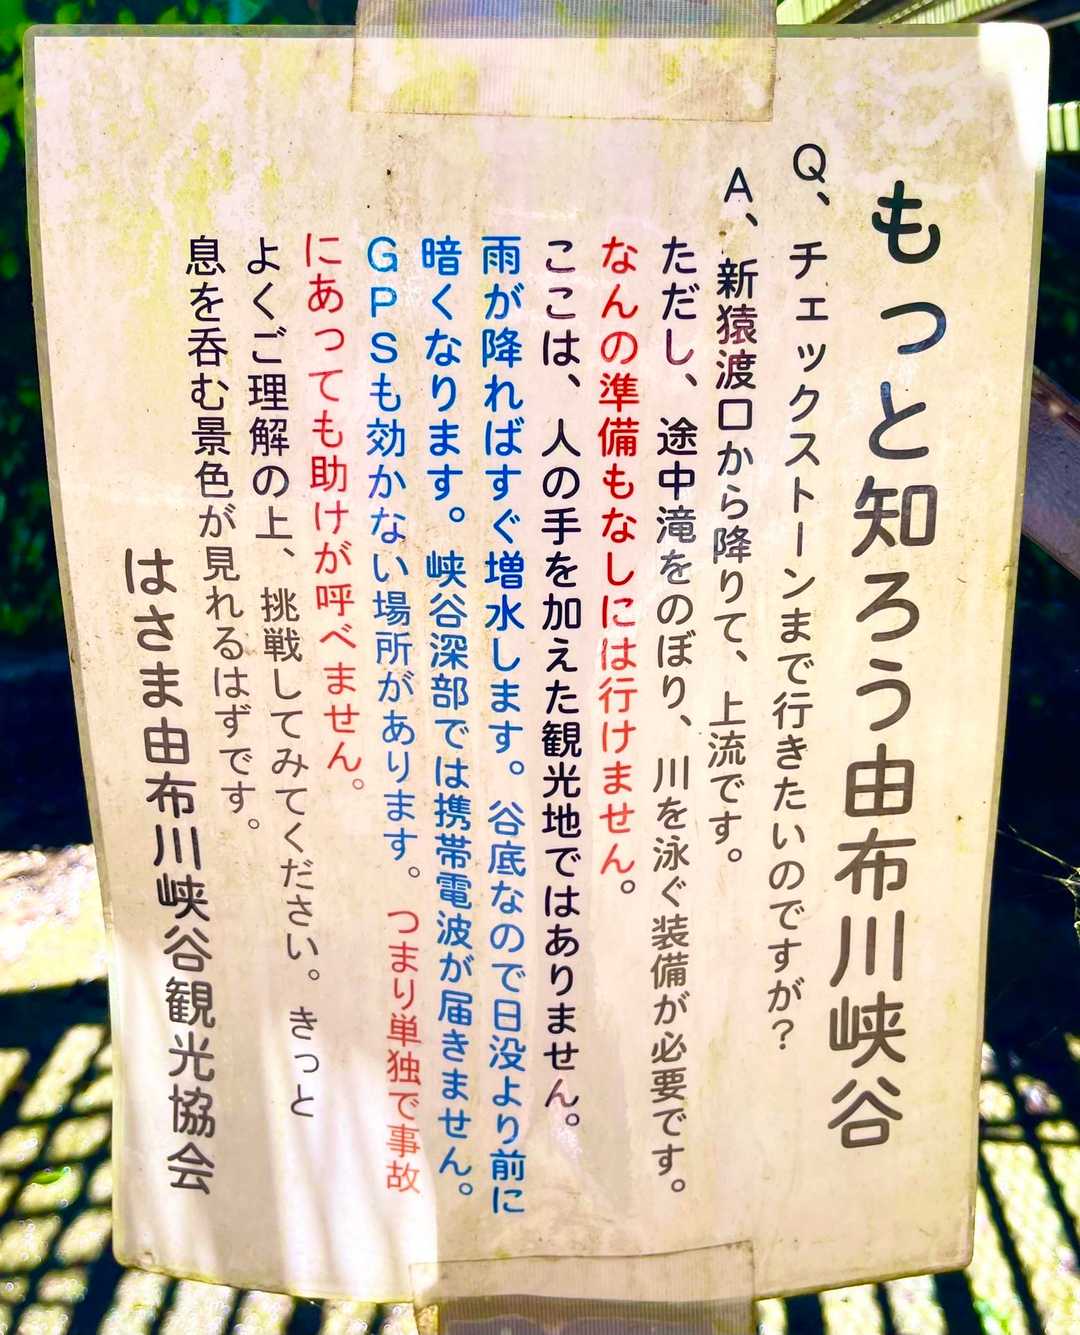 もっと知ろう由布川峡谷
Q、チェックストーンまで行きたいのですが？
A、新猿渡口から降りて、上流です。
ただし、途中滝をのぼり、川を泳ぐ装備が必要です。
なんの準備もなしには行けません。
ここは、人の手を加えた観光地ではありません。
雨が降ればすぐ増水します。谷底なので日没より前に
暗くなります。峡谷深部では携帯電波が届きません。
GPSも効かない場所があります。つまり単独で事故
にあっても助けが呼べません。
よくご理解の上、挑戦してみてください。きっと
息を呑む景色が見れるはずです。
はさま由布川峡谷観光協会